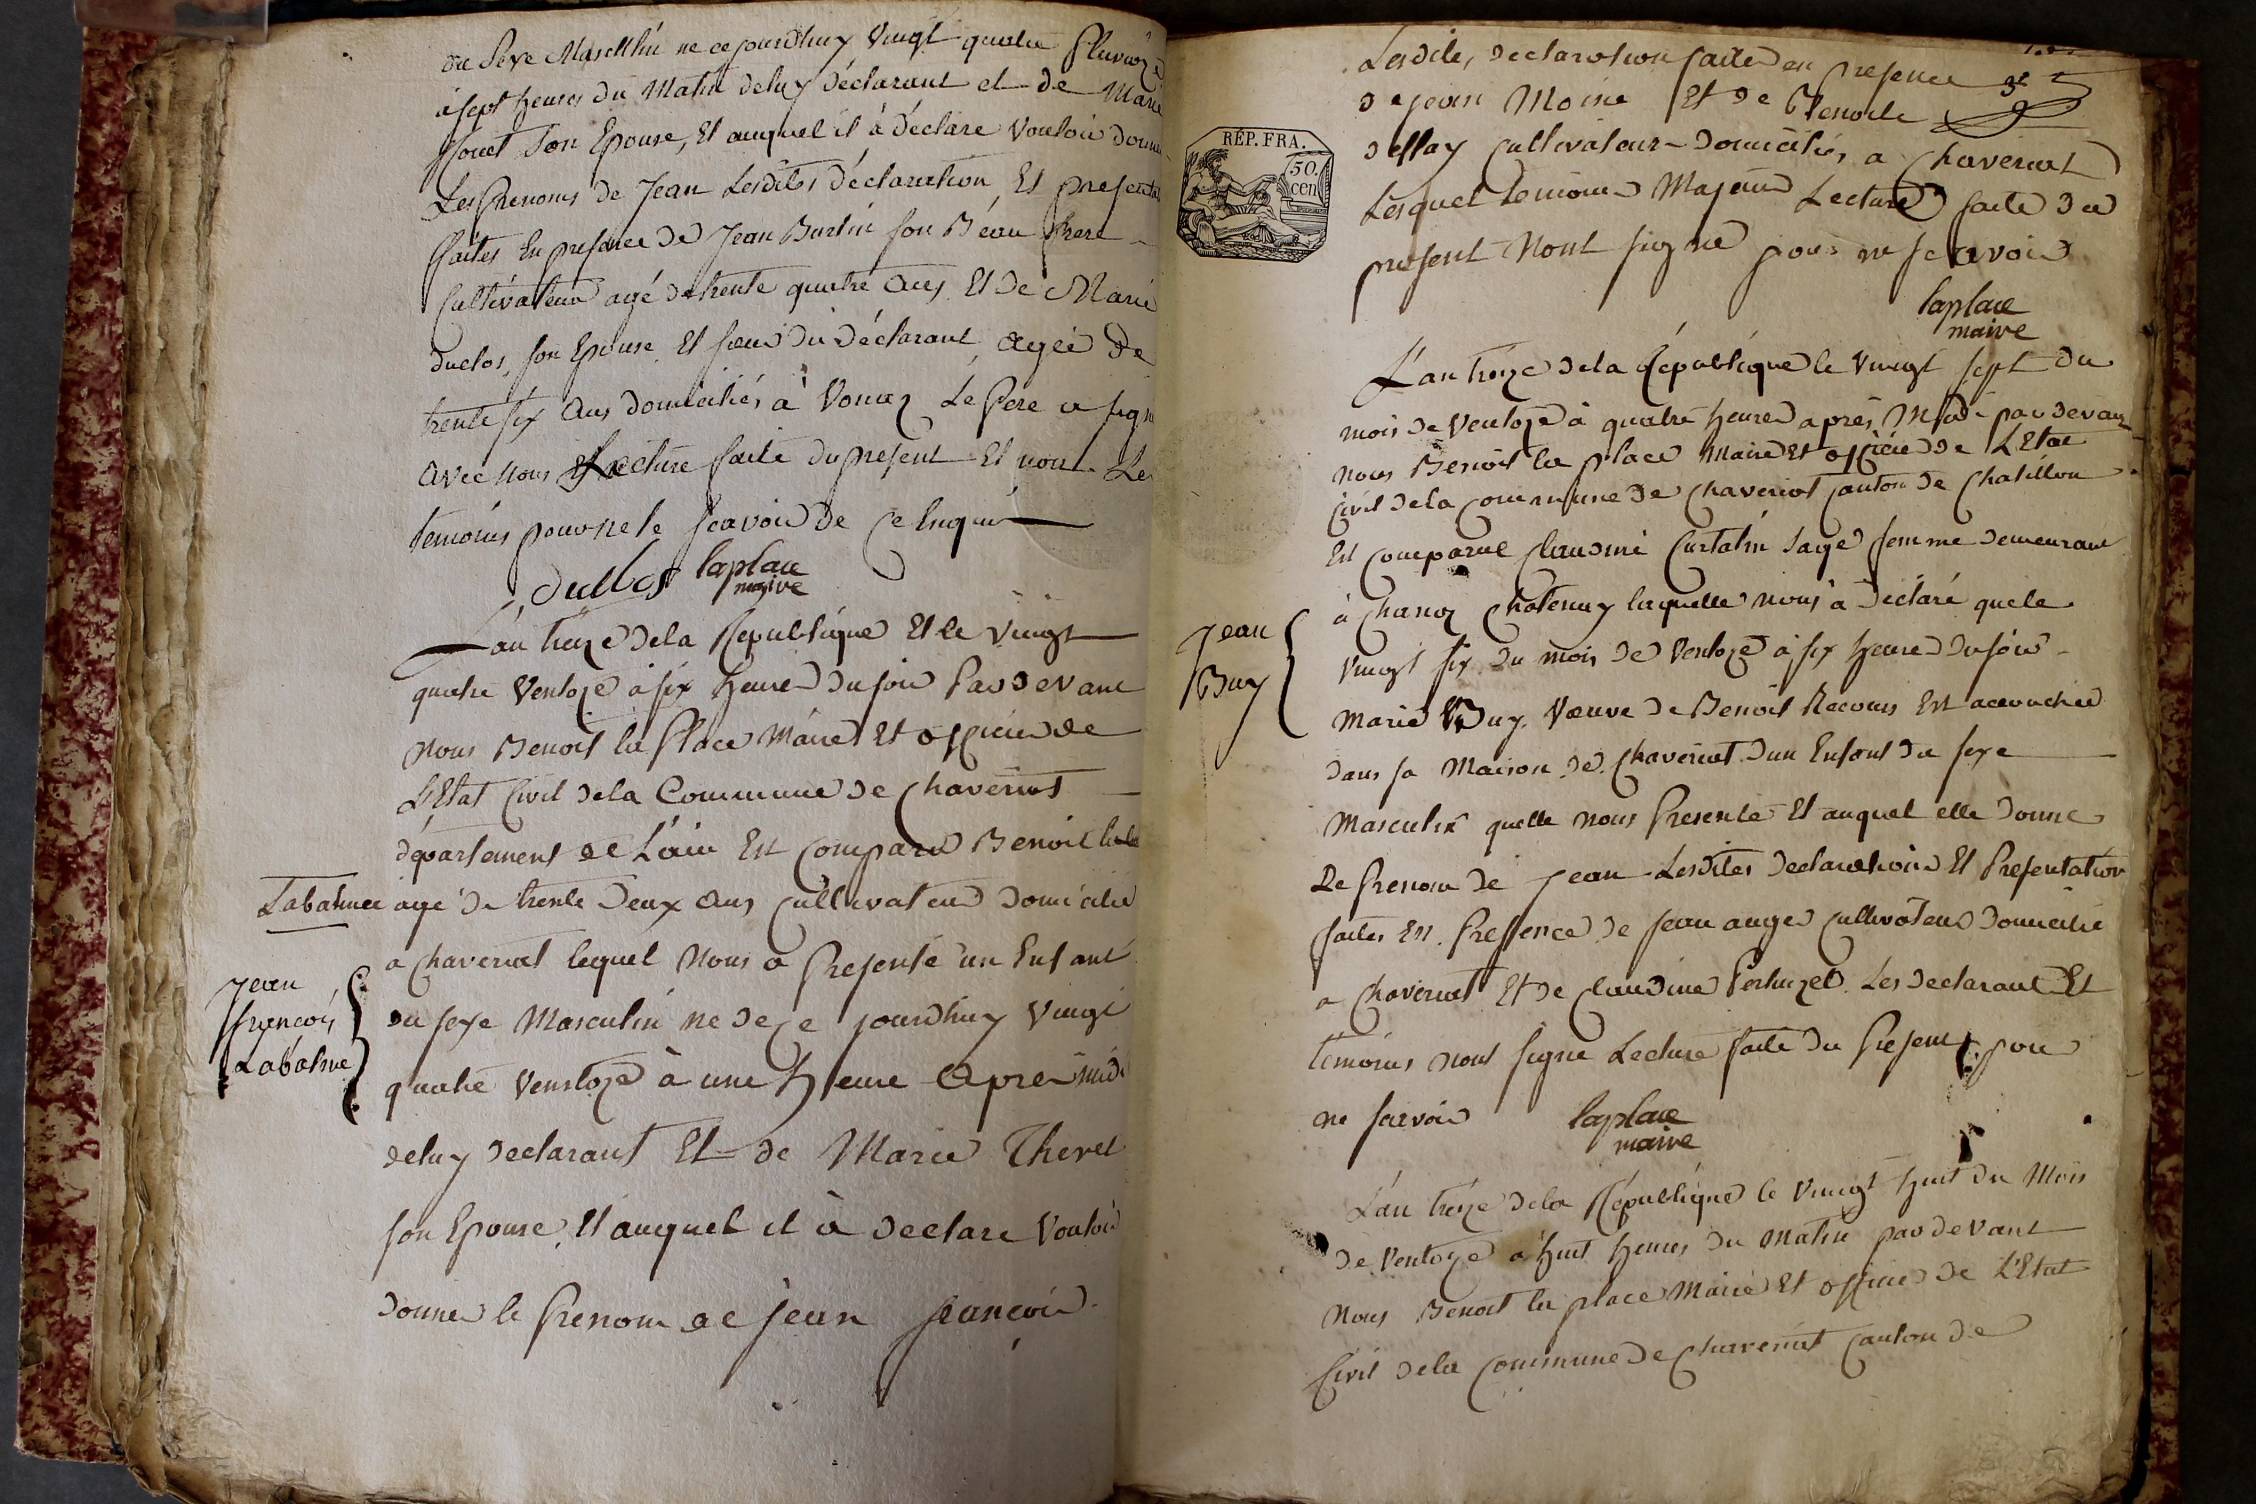 du sexe Masculin ne ce jourdhuy Vingt quatre Pluvioze
à sept heures du Matin deluy Déclarant et de Marie
son Epouse, Et auquel il à Déclare Vouloir donner
Les Prenoms de Jean Lesdites déclaration Et presenta
faites En presence de Jean Burtin son Béau frere
Cultivateur agé de trente quatre ans Et De Marie
duclos, son Epouse Et soeur du Déclarant agéé De
trente six ans domiciliés à Vonnaz Lé Pere a signé
avec nous Lecture faite du present Et non Les
temoins pour ne le scavoir de ce Enquis
Duclos laplace
maire
L'an treize dela Republique Et le Vingt
quatre Ventoze à six heure du soir Pardevant
nous Benoit la Place Maire Et officier de
L'Etat Civil dela Commune de Chaveriat
département de L'ain Est Comparu Benoit
Labatnee agé de trente Deux ans Cultivateur Domicilié
a Chaveriat lequel Nous a Presenté un Enfant
Jean
francois
Labatnee
du sexe Masculin ne de ce jourdhuy Vingt
quatre Ventoze à une heure apres midi
deluy Declarant Et de Marie Thevet
son Epouse, Et auquel il à Declare Vouloir
donner le Prenom de jean francois
Lesdites Declaration faite en presence de
de jean Moine Et de Benoite
Cultivateur Domiciliés a Chaveriat
Lesquel temoins Majeur Lecture faite du
present Nont signé pour ne scavoir
REP. FRA.
50.
cen
laplace
maire
L'an treize dela République le Vingt sept du
mois de Ventoze à quatre heure après Midi par devant
nous Benoit la place Maire Et officier de L'Etat
Civil dela Commune de Chaveriat Canton de Chatillon
Est Comparue Claudine Curtalin sage femme demeurant
à Chanoz Chatenay laquelle nous à déclaré quele
Jean
Buy
Vingt six du mois de Ventoze à six heure du soir
Marie Buy Veuve de Benoit Recours Est accouchée
dans sa Maison de Chaveriat Dun Enfant du sexe
Masculin quelle nous Presente Et auquel elle Donne
Le Prenom de Jean Lesdites declaration Et Presentation
faites En Pressence de Jean auger Cultivateur Domicilié
a Chaveriat Et de Claudine Pertuizet Les declarant Et
temoins nont signe Lecture faite du Present pour
ne scavoir laplace
maire
L'an treize dela République le Vingt huit du Mois
de Ventoze à huit heures du Matin par devant
Nous Benoit la place Maire Et officier de L'Etat
Civil dela Commune de Chaveriat Canton de